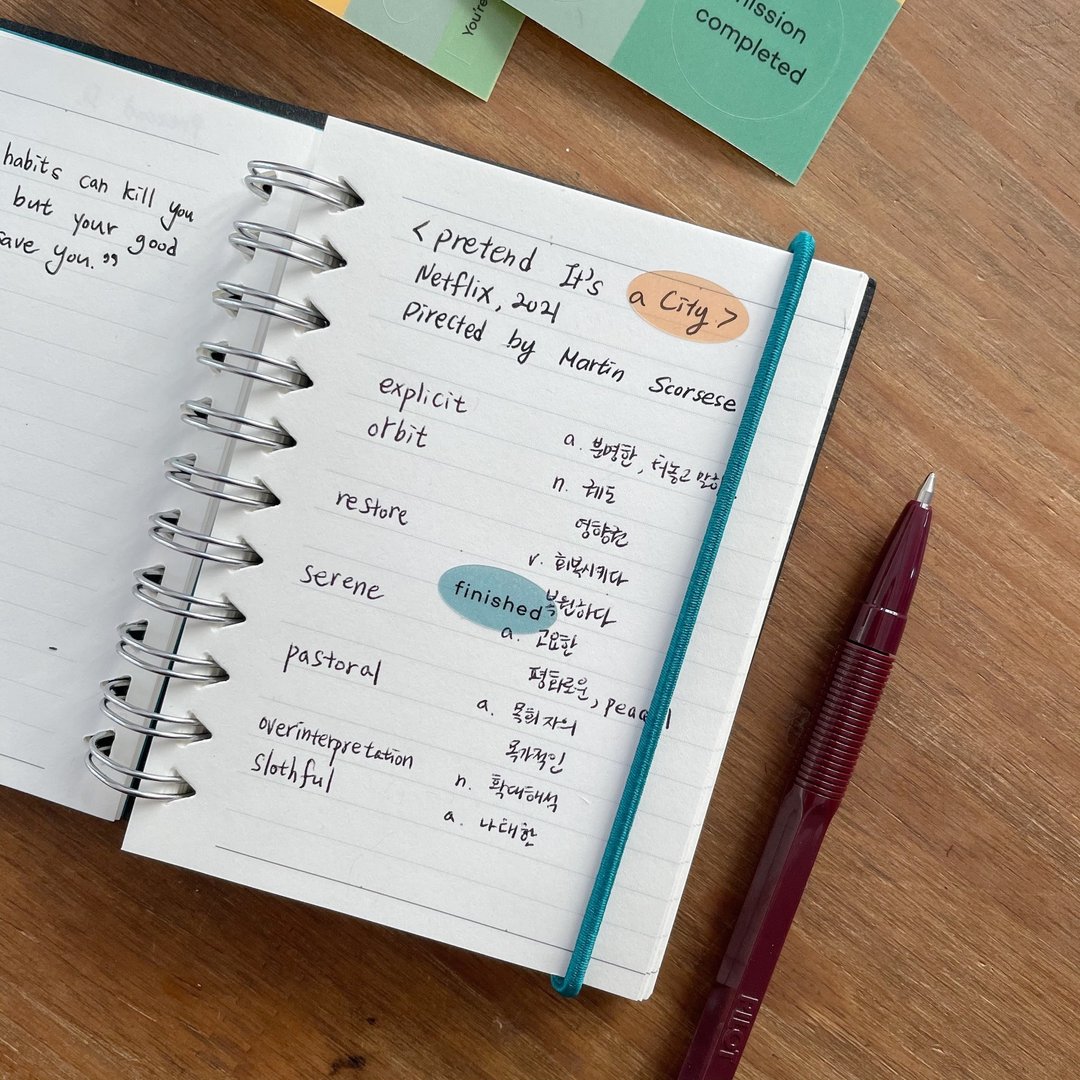 You're
mission
completed
habits can kill you
but your good
save you."
< pretend It's a City >
Netflix, 2021
Directed by Martin Scorsese
explicit a. 분명한, 터놓고 말하
orbit n. 궤도
영향권
restore v. 회복시키다
복원하다
serene finished a. 고요한
평화로운, peaceful
pastoral a. 목회자의
목가적인
overinterpretation n. 확대해석
slothful a. 나태한
PILOT